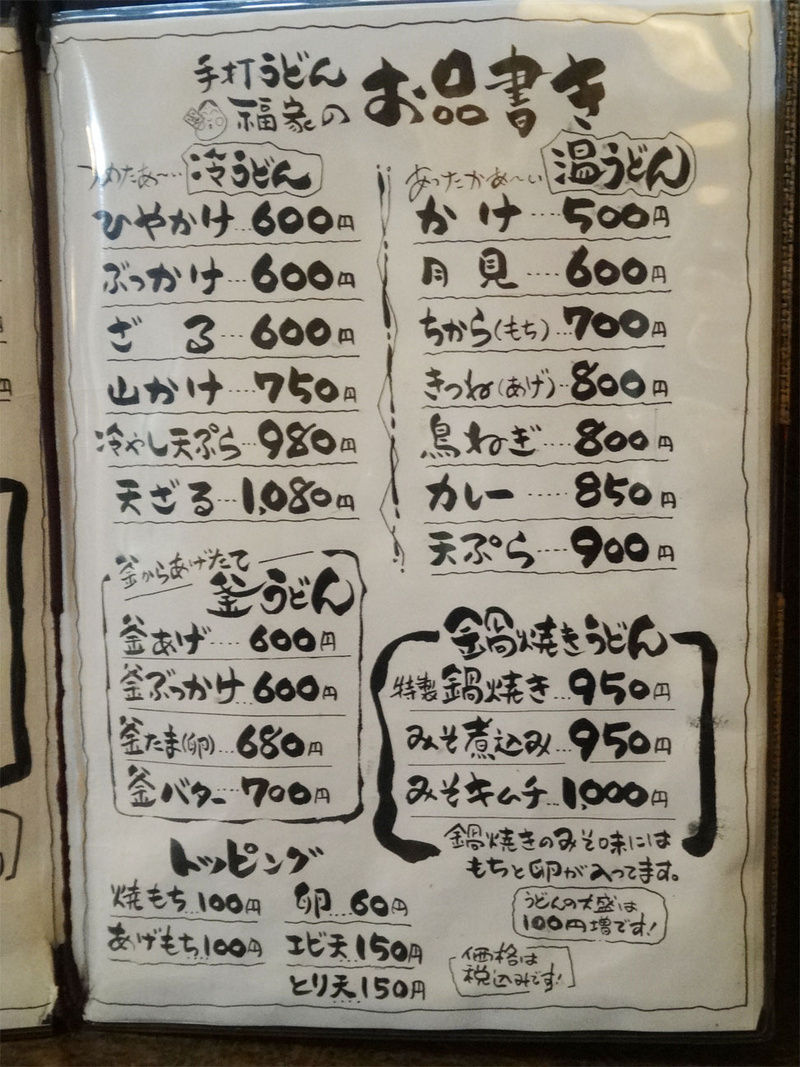 手打うどん
福家の
お品書き
つめたあ〜い 冷うどん
ひやかけ…600円
ぶっかけ…600円
ざる…600円
山かけ…750円
冷やし天ぷら…980円
天ざる…1,080円
あったかあ〜い 温うどん
かけ…500円
月見…600円
ちから(もち)…700円
きつね(あげ)…800円
鳥ねぎ…800円
カレー…850円
天ぷら…900円
釜からあげたて
釜うどん
釜あげ…600円
釜ぶっかけ…600円
釜たま(卵)…680円
釜バター…700円
鍋焼きうどん
特製鍋焼き…950円
みそ煮込み…950円
みそキムチ…1,000円
鍋焼きのみそ味には
もちと卵が入ってます。
トッピング
焼もち…100円
あげもち…100円
卵…60円
エビ天…150円
とり天…150円
うどんの大盛は
100円増です!
価格は
税込みです!
円